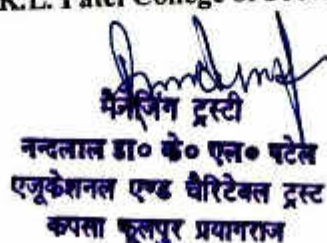 K.L. Patel College of
मैनेजिंग ट्रस्टी
नन्दलाल डा० के० एल० पटेल
एजूकेशनल एण्ड चैरिटेबल ट्रस्ट
कपसा फूलपुर प्रयागराज